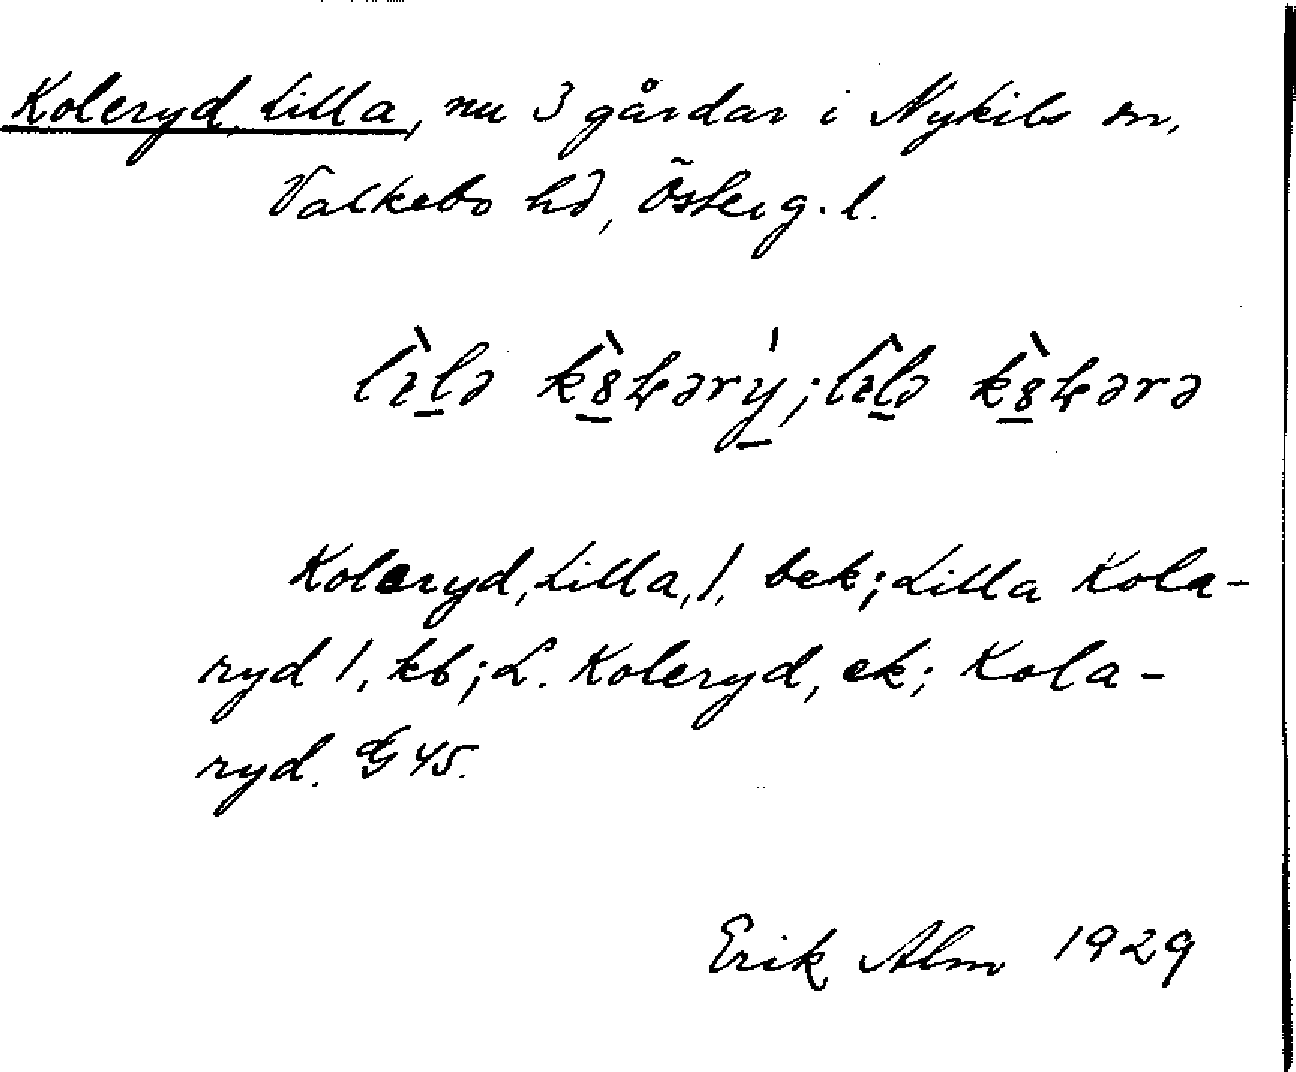 Koleryd, Lilla, nu 3 gårdar i Nykils sn,
Valkebo hd, Österg. l.
Koleryd, Lilla, 1, bek; Lilla Kola-
ryd 1, kb; L. Koleryd, ek; Kola-
ryd. G 45.
Erik Alm 1929